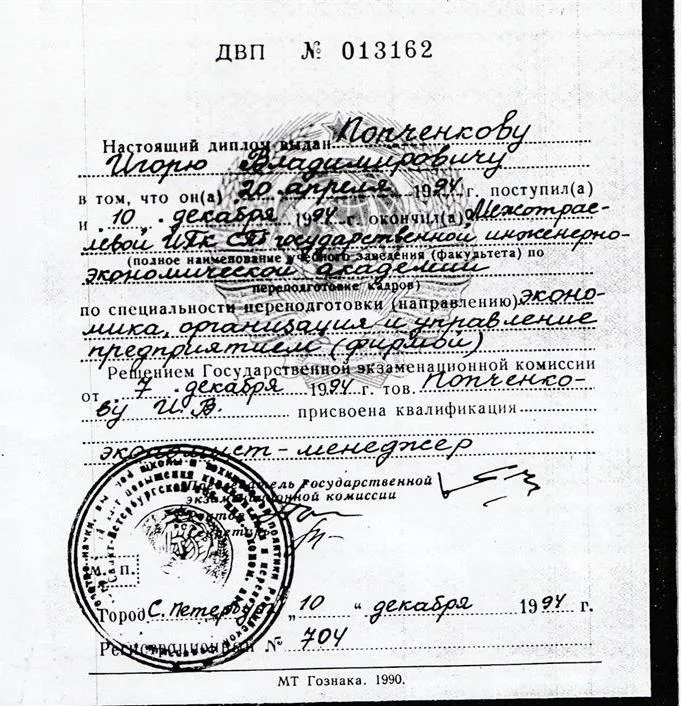 ДВП № 013162
Настоящий диплом выдан Попченкову
Игорю Владимировичу
в том, что он(а) 20 апреля 1994 г. поступил(а)
и 10 декабря 1994 г. окончил(а) Межотрас-
левой ИПК СПб государственной инженерно-
(полное наименование учебного заведения (факультета) по
экономической академии
переподготовке кадров)
по специальности переподготовки (направлению) эконо-
мика, организация и управление
предприятием (фирмой)
Решением Государственной экзаменационной комиссии
от 7 декабря 1994 г. тов. Попченко-
ву И.В. присвоена квалификация
экономист-менеджер
Председатель Государственной
экзаменационной комиссии
М. П.
Город С. Петербург „ 10 “ декабря 1994 г.
Регистрационный № 704
МТ Гознака. 1990.